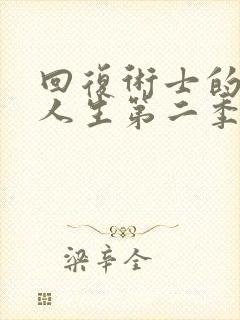 回復術士的
人生第二季
梁辛全